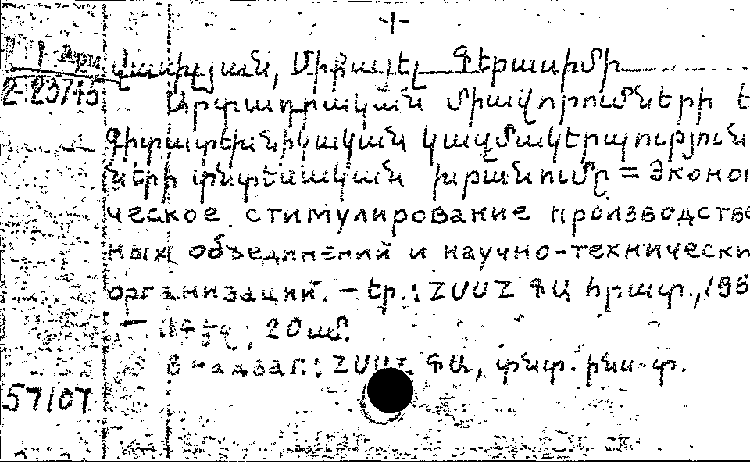 Վասիլյան, Միքայել Գերասիմի
2-23745 Արտադրական միավորումների
գիտատեխնիկական կազմակերպություն
ների տնտեսական խթանումը = Эконо
ческое стимулирование производстве
ных объединений и научно-технически
организаций. – Եր.: ՀՍՍՀ ԳԱ հրատ., 198
20 սմ.
В надзаг.: ՀՍՍՀ ԳԱ, տնտ. ինս-տ.
57107